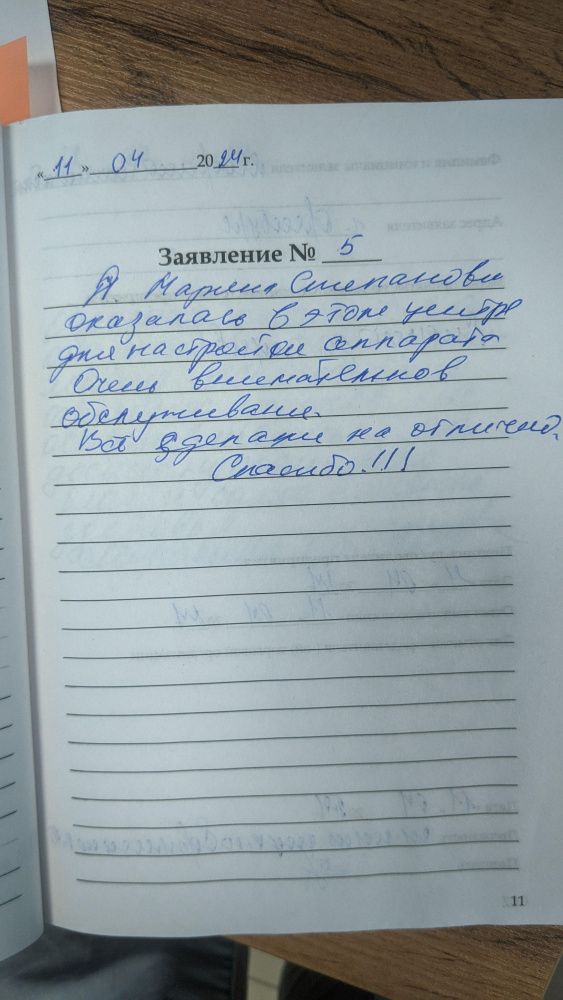 « 11 » 04 2024 г.
Заявление № 5
Я Марина Степановн
оказалась в этом центре
для настройки аппарата
Очень внимательное
обслуживани.
Все сделали на отлично.
Спасибо!!!
11